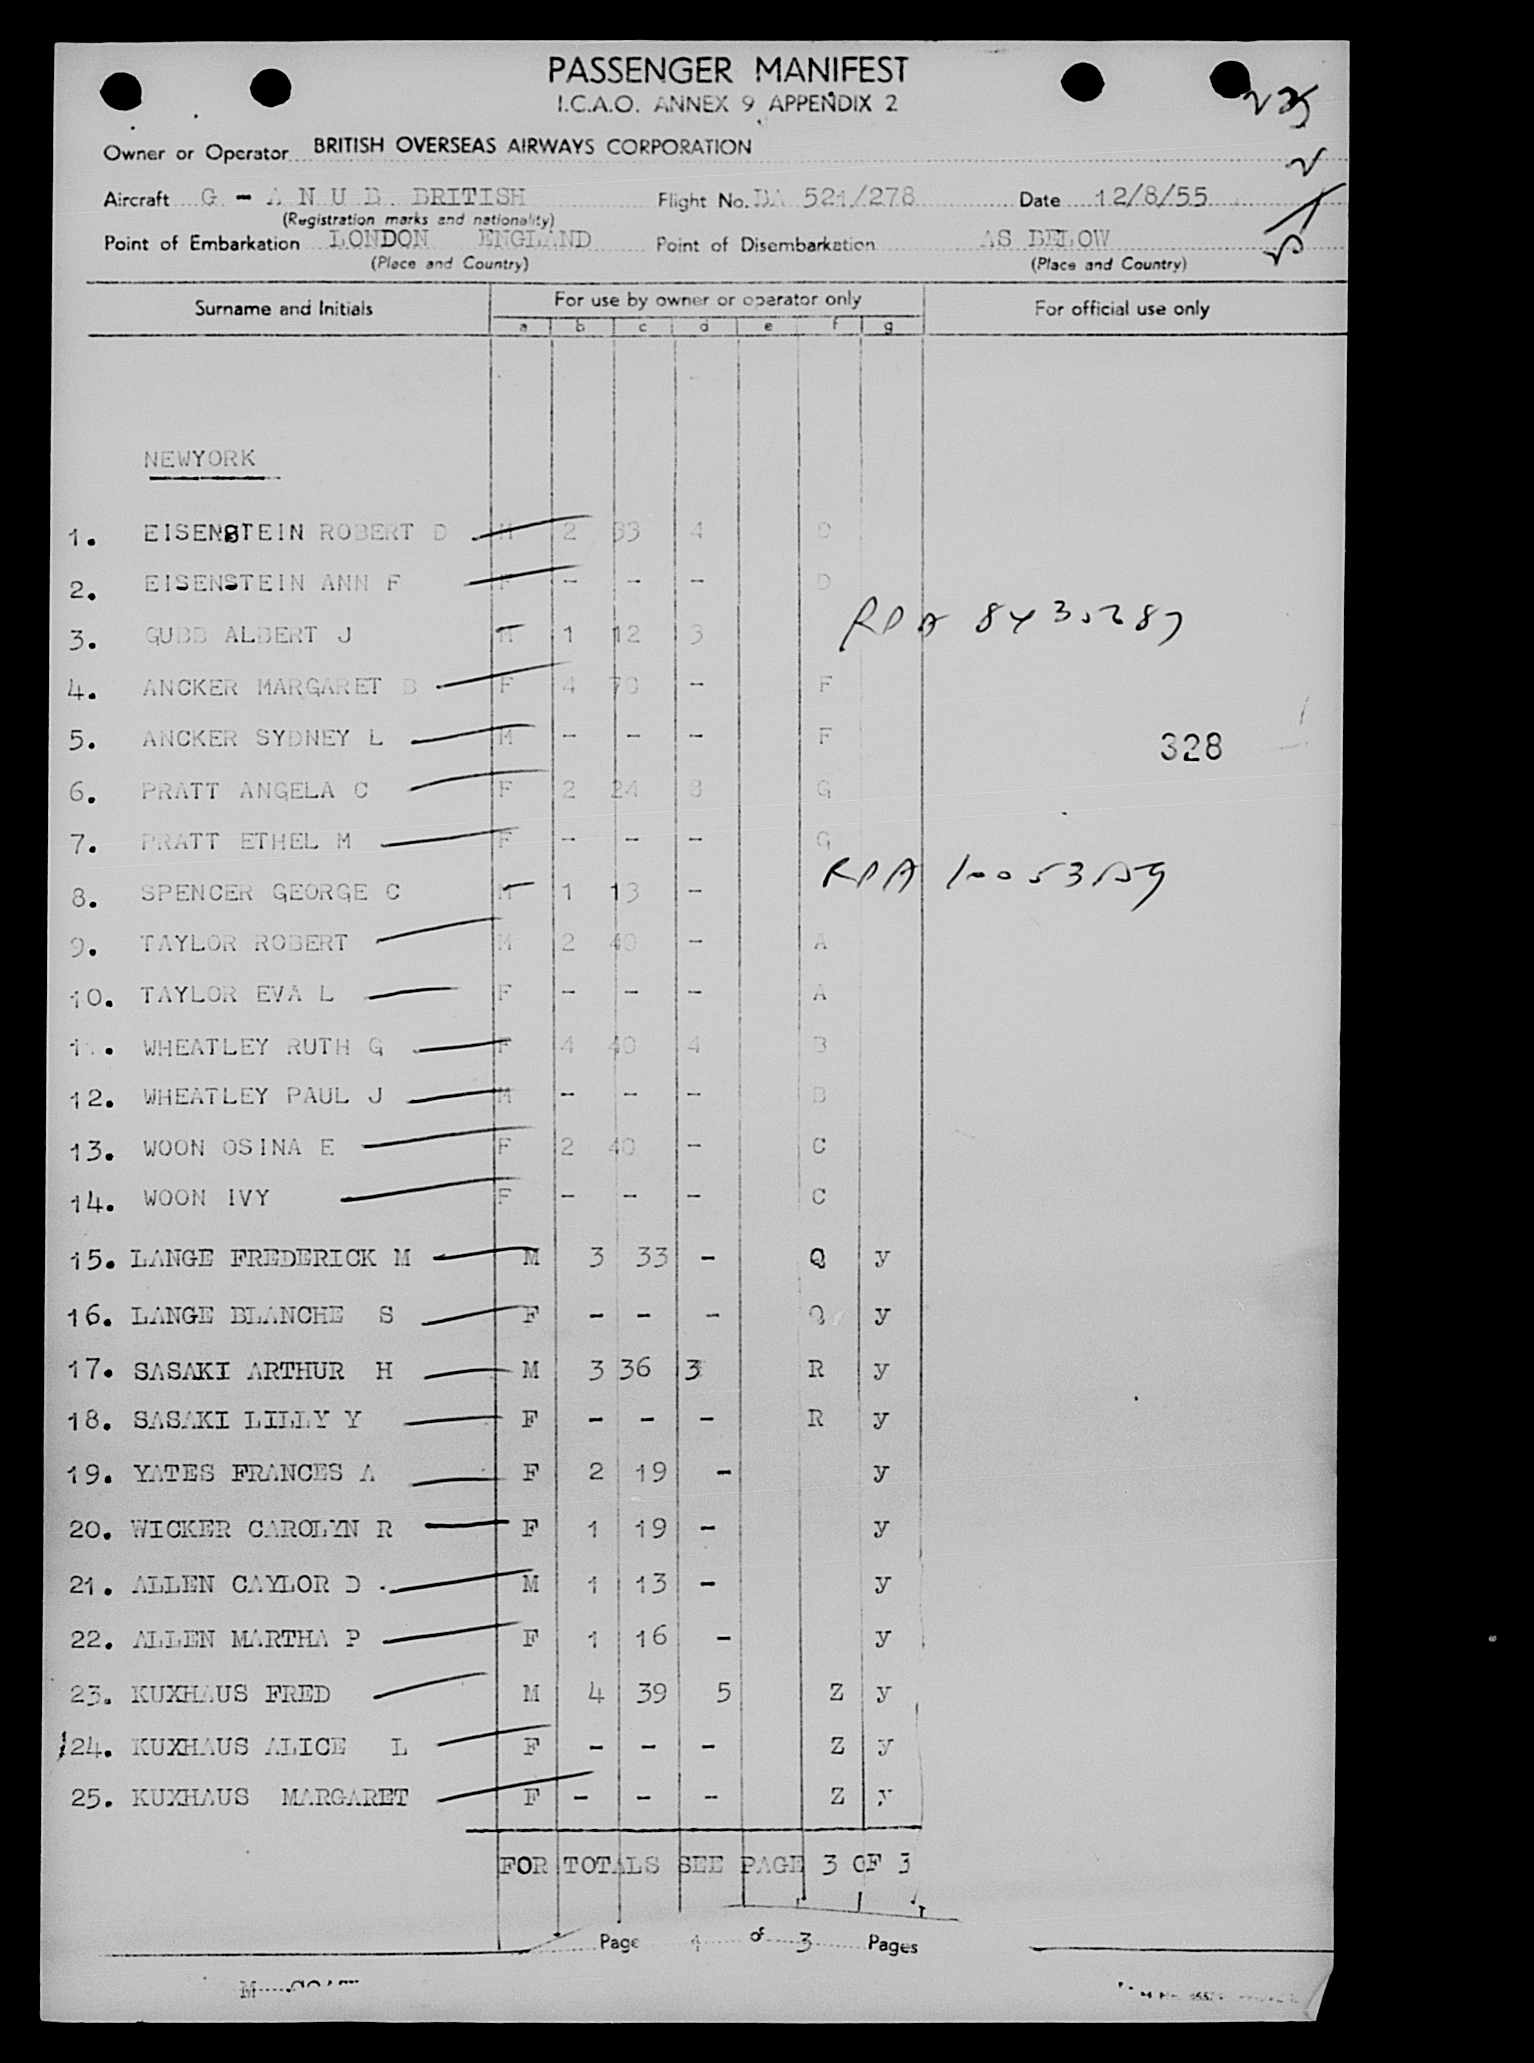 PASSENGER MANIFEST
I.C.A.O. ANNEX 9 APPENDIX 2
Owner or Operator BRITISH OVERSEAS AIRWAYS CORPORATION
Aircraft G - A N U B. BRITISH Flight No. BA 521/278 Date 12/8/55
(Registration marks and nationality)
Point of Embarkation LONDON ENGLAND Point of Disembarkation AS BELOW
(Place and Country) (Place and Country)
Surname and Initials For use by owner or operator only For official use only
a b c d e f g
NEWYORK
1. EISENSTEIN ROBERT D M 2 33 4 D
2. EISENSTEIN ANN F F - - - D
3. GUBB ALBERT J M 1 12 3
4. ANCKER MARGARET B F 4 70 - F
5. ANCKER SYDNEY L M - - - F
328
6. PRATT ANGELA C F 2 24 8 G
7. PRATT ETHEL M F - - - G
8. SPENCER GEORGE C M 1 13 -
9. TAYLOR ROBERT M 2 40 - A
10. TAYLOR EVA L F - - - A
11. WHEATLEY RUTH G F 4 40 4 B
12. WHEATLEY PAUL J M - - - B
13. WOON OSINA E F 2 40 - C
14. WOON IVY F - - - C
15. LANGE FREDERICK M M 3 33 - Q y
16. LANGE BLANCHE S F - - - Q y
17. SASAKI ARTHUR H M 3 36 3 R y
18. SASAKI LILLY Y F - - - R y
19. YATES FRANCES A F 2 19 - y
20. WICKER CAROLYN R F 1 19 - y
21. ALLEN CAYLOR D M 1 13 - y
22. ALLEN MARTHA P F 1 16 - y
23. KUXHAUS FRED M 4 39 5 Z y
24. KUXHAUS ALICE L F - - - Z y
25. KUXHAUS MARGARET F - - - Z y
FOR TOTALS SEE PAGE 3 OF 3
Page 1 of 3 Pages